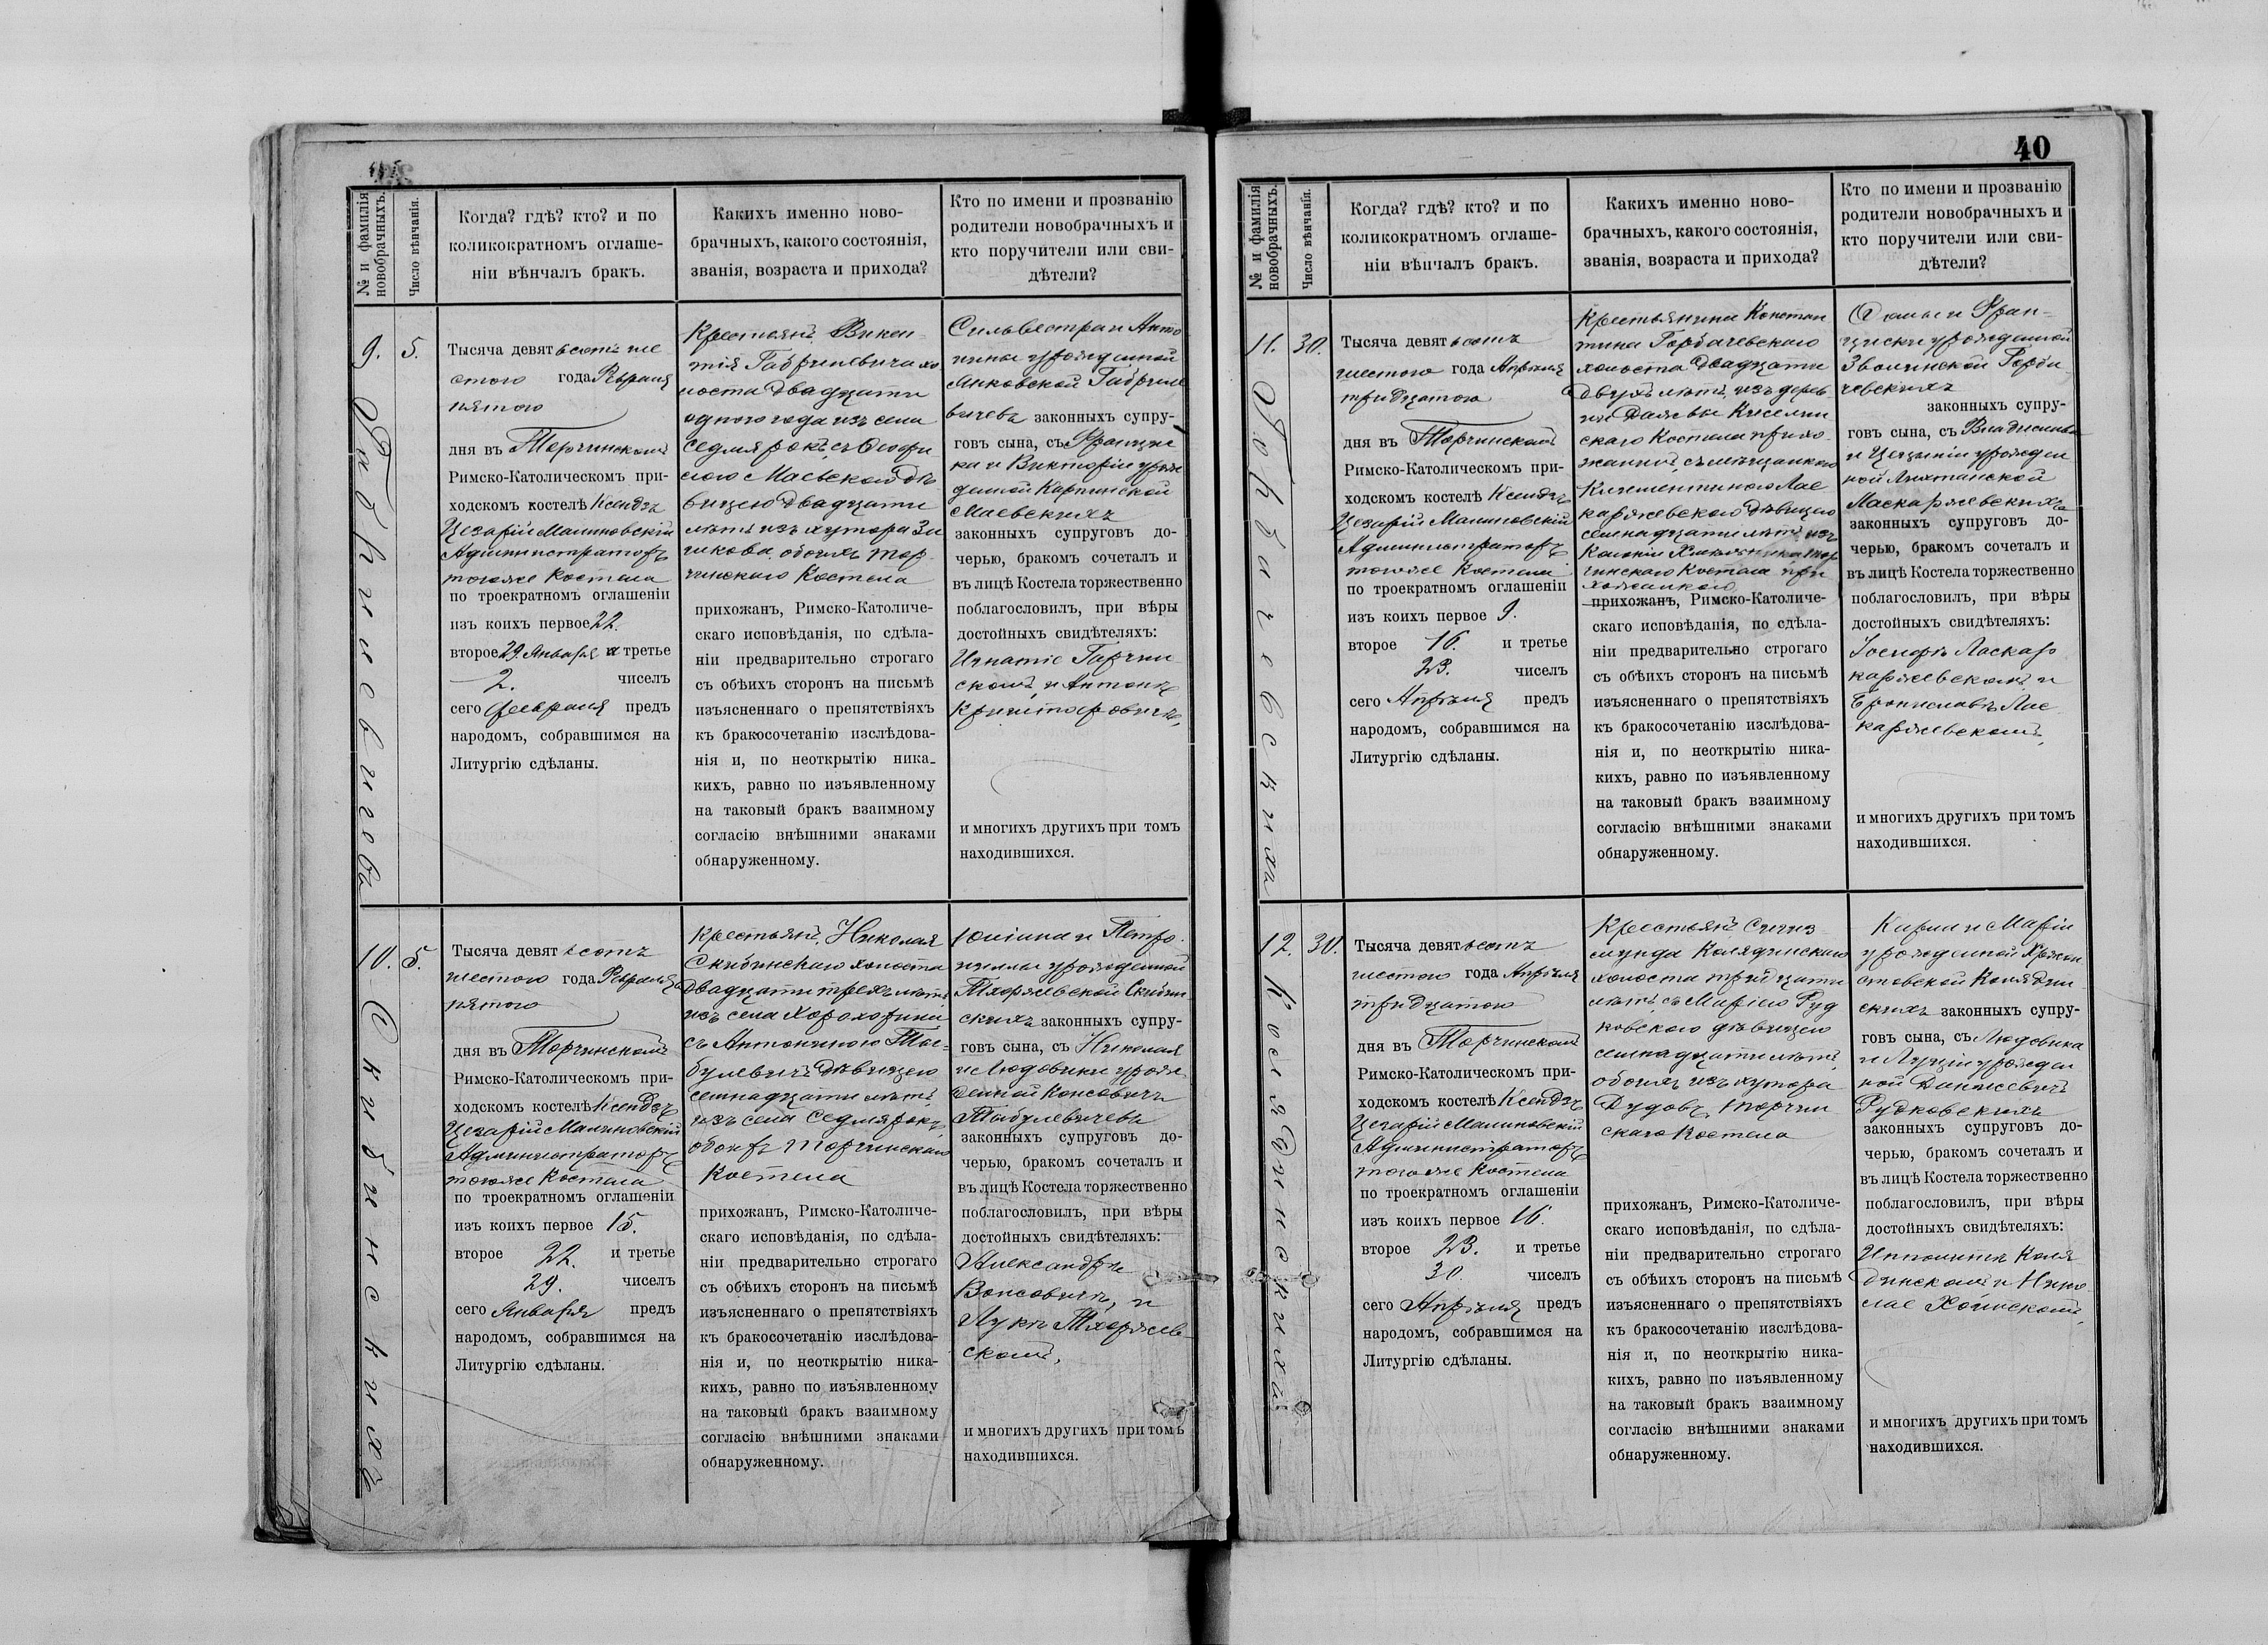 40
№ и фамилія
новобрачныхъ.
Число вѣнчанія.
Когда? гдѣ? кто? и по
коликократномъ оглаше-
ніи вѣнчалъ бракъ.
Какихъ именно ново-
брачныхъ, какого состоянія,
званія, возраста и прихода?
Кто по имени и прозванію
родители новобрачныхъ и
кто поручители или сви-
дѣтели?
9.
Габрилевичевъ
5.
Тысяча девятьсотъ ше
стого года Февраля
пятого
дня въ Торчинскомъ
Римско-Католическомъ при-
ходскомъ костелѣ Ксендзъ
Цезарій Малиновскій
Администраторъ
тогоже Костела
по троекратномъ оглашеніи
изъ коихъ первое 22.
второе 29. Января и третье
2. чиселъ
сего Февраля предъ
народомъ, собравшимся на
Литургію сдѣланы.
Крестьянъ Викен-
тія Габрилевича хо
лоста двадцати
одного года изъ села
Седмярокъ, съ Теофи
лою Маевскою дѣ
вицею двадцати
лѣтъ изъ хутора
обоихъ Тор-
чинскаго Костела
прихожанъ, Римско-Католиче-
скаго исповѣданія, по сдѣла-
ніи предварительно строгаго
съ обѣихъ сторонъ на письмѣ
изъясненнаго о препятствіяхъ
къ бракосочетанію изслѣдова-
нія и, по неоткрытію ника-
кихъ, равно по изъявленному
на таковый бракъ взаимному
согласію внѣшними знаками
обнаруженному.
Сильвестра и Анто
нины урожденной
Янковской Габриле
вичевъ законныхъ супру-
говъ сына, съ Францис
ка и Викторіи урож
денной Карпинской
Маевскихъ
законныхъ супруговъ до-
черью, бракомъ сочеталъ и
въ лицѣ Костела торжественно
поблагословилъ, при вѣры
достойныхъ свидѣтеляхъ:
Игнатіе Гарчин
скомъ, и Антонѣ
Криштофовичѣ,
и многихъ другихъ при томъ
находившихся.
10.
Скибинскихъ
5.
Тысяча девятьсотъ
шестого года Февраля
пятого
дня въ Торчинскомъ
Римско-Католическомъ при-
ходскомъ костелѣ Ксендзъ
Цезарій Малиновскій
Администраторъ
тогоже Костела
по троекратномъ оглашеніи
изъ коихъ первое 15.
второе 22. и третье
29. чиселъ
сего Января предъ
народомъ, собравшимся на
Литургію сдѣланы.
Крестьянъ, Николая
Скибинскаго холоста
двадцати трехъ лѣтъ
изъ села Хорохорина
съ Антониною Таб-
булевичъ дѣвицею
семнадцати лѣтъ
изъ села Седмярокъ,
обоихъ Торчинскаго
Костела
прихожанъ, Римско-Католиче-
скаго исповѣданія, по сдѣла-
ніи предварительно строгаго
съ обѣихъ сторонъ на письмѣ
изъясненнаго о препятствіяхъ
къ бракосочетанію изслѣдова-
нія и, по неоткрытію ника-
кихъ, равно по изъявленному
на таковый бракъ взаимному
согласію внѣшними знаками
обнаруженному.
Юліана и Петро-
неллы урожденной
Тхоржевской Скибин
скихъ законныхъ супру-
говъ сына, съ Николая
и Людовики урож
денной Консовичъ
Табулевичевъ
законныхъ супруговъ до-
черью, бракомъ сочеталъ и
въ лицѣ Костела торжественно
поблагословилъ, при вѣры
достойныхъ свидѣтеляхъ:
Александрѣ
Вонсовичѣ, и
Лукѣ Тхоржев
скомъ,
и многихъ другихъ при томъ
находившихся.
№ и фамилія
новобрачныхъ.
Число вѣнчанія.
Когда? гдѣ? кто? и по
коликократномъ оглаше-
ніи вѣнчалъ бракъ.
Какихъ именно ново-
брачныхъ, какого состоянія,
званія, возраста и прихода?
Кто по имени и прозванію
родители новобрачныхъ и
кто поручители или сви-
дѣтели?
11.
Горбачевскихъ
30.
Тысяча девятьсотъ
шестого года Апрѣля
тридцатого
дня въ Торчинскомъ
Римско-Католическомъ при-
ходскомъ костелѣ Ксендзъ
Цезарій Малиновскій
Администраторъ
тогоже Костела
по троекратномъ оглашеніи
изъ коихъ первое 9.
второе 16. и третье
23. чиселъ
сего Апрѣля предъ
народомъ, собравшимся на
Литургію сдѣланы.
Крестьянина Констан
тина Горбачевскаго
холоста двадцати
двухъ лѣтъ, изъ дерев
ни Кисели
скаго Костела прихо-
жанина, съ мѣщанкою
Клементиною Лас
каржевскою дѣвицею
семнадцати лѣтъ, изъ
Колоніи Тор
чинскаго Костела при
хожанкою
прихожанъ, Римско-Католиче-
скаго исповѣданія, по сдѣла-
ніи предварительно строгаго
съ обѣихъ сторонъ на письмѣ
изъясненнаго о препятствіяхъ
къ бракосочетанію изслѣдова-
нія и, по неоткрытію ника-
кихъ, равно по изъявленному
на таковый бракъ взаимному
согласію внѣшними знаками
обнаруженному.
Фомы и Фран-
циски урожденной
Зволинской Горба
чевскихъ
законныхъ супру-
говъ сына, съ Владислава
и Цециліи урожден
ной Лихтанской
Ласкаржевскихъ
законныхъ супруговъ до-
черью, бракомъ сочеталъ и
въ лицѣ Костела торжественно
поблагословилъ, при вѣры
достойныхъ свидѣтеляхъ:
Іосифѣ Ласкар
каржевскомъ, и
Брониславѣ Лас
каржевскомъ,
и многихъ другихъ при томъ
находившихся.
12.
Колядинскихъ
30.
Тысяча девятьсотъ
шестого года Апрѣля
тридцатого
дня въ Торчинскомъ
Римско-Католическомъ при-
ходскомъ костелѣ Ксендзъ
Цезарій Малиновскій
Администраторъ
тогоже Костела
по троекратномъ оглашеніи
изъ коихъ первое 16.
второе 23. и третье
30. чиселъ
сего Апрѣля предъ
народомъ, собравшимся на
Литургію сдѣланы.
Крестьянъ Сигиз
мунда Колядинскаго
холоста тридцати
лѣтъ, съ Маріею Руд
ковскою дѣвицею
семнадцати лѣтъ,
обоихъ изъ хутора
Дудовъ, Торчин
скаго Костела
прихожанъ, Римско-Католиче-
скаго исповѣданія, по сдѣла-
ніи предварительно строгаго
съ обѣихъ сторонъ на письмѣ
изъясненнаго о препятствіяхъ
къ бракосочетанію изслѣдова-
нія и, по неоткрытію ника-
кихъ, равно по изъявленному
на таковый бракъ взаимному
согласію внѣшними знаками
обнаруженному.
Карла и Маріи
урожденной Хржон
стовской Колядин
скихъ законныхъ супру-
говъ сына, съ Людовика
и Луціи урожден
ной Данилевичъ
Рудковскихъ
законныхъ супруговъ до-
черью, бракомъ сочеталъ и
въ лицѣ Костела торжественно
поблагословилъ, при вѣры
достойныхъ свидѣтеляхъ:
Ипполитѣ Коля
динскомъ и Нико
лае Хоинскомъ,
и многихъ другихъ при томъ
находившихся.